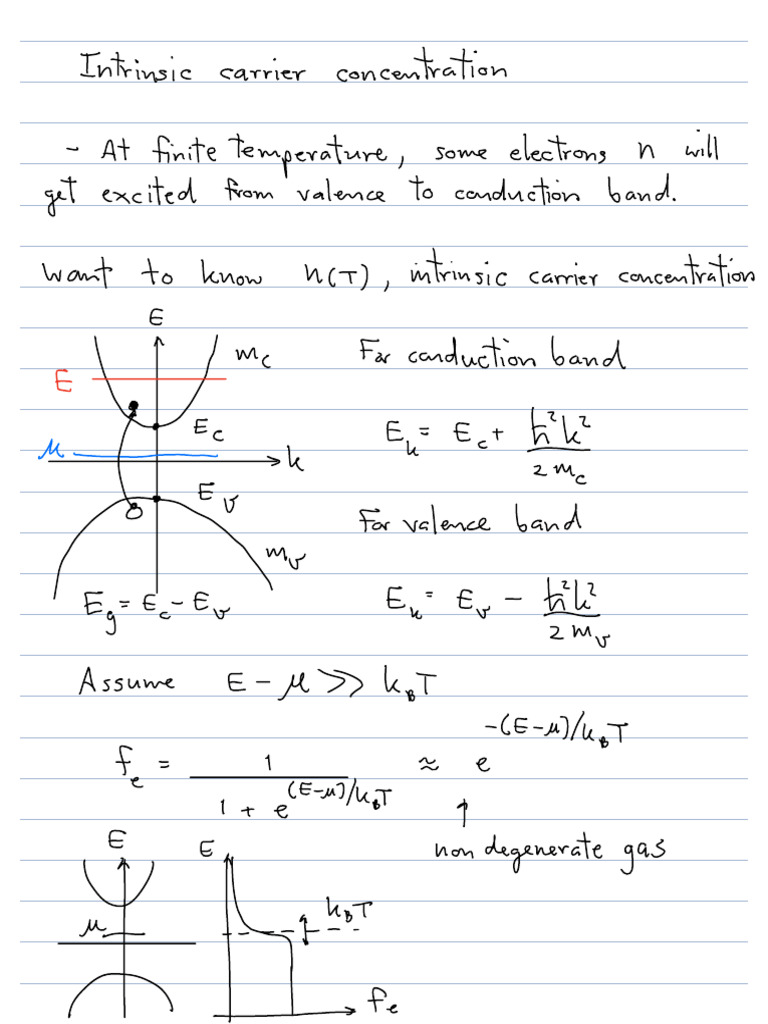 Intrinsic carrier concentration
- At finite temperature, some electrons n will
get excited from valence to conduction band.
want to know n(T), intrinsic carrier concentration
E
m_c
For conduction band
E
E_c
E_k = E_c + ħ²k²/2m_c
μ
k
E_v
For valence band
m_v
E_g = E_c - E_v
E_k = E_v - ħ²k²/2m_v
Assume E - μ >> k_BT
f_e = 1/(1 + e^{(E-μ)/k_BT}) ≈ e^{-(E-μ)/k_BT}
↑
non degenerate gas
E
E
μ
k_BT
f_e